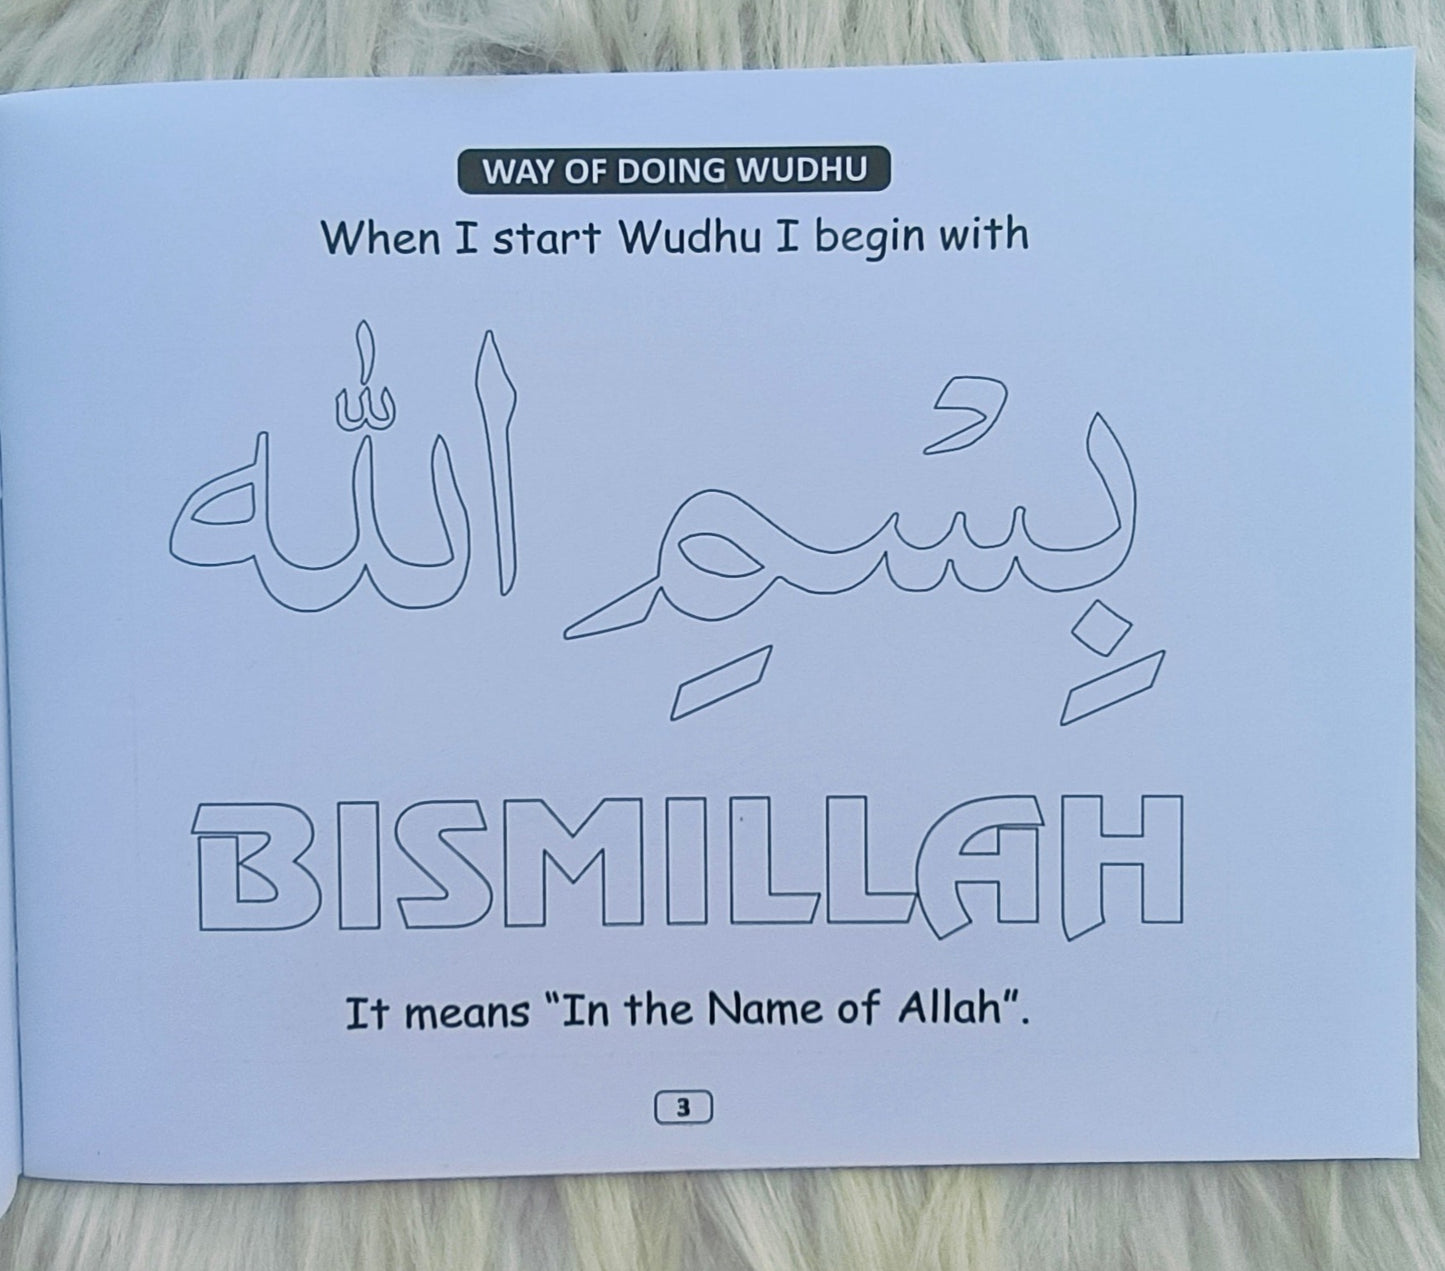 WAY OF DOING WUDHU
When I start Wudhu I begin with
بِسْمِ اللّٰه
BISMILLAH
It means “In the Name of Allah”.
3